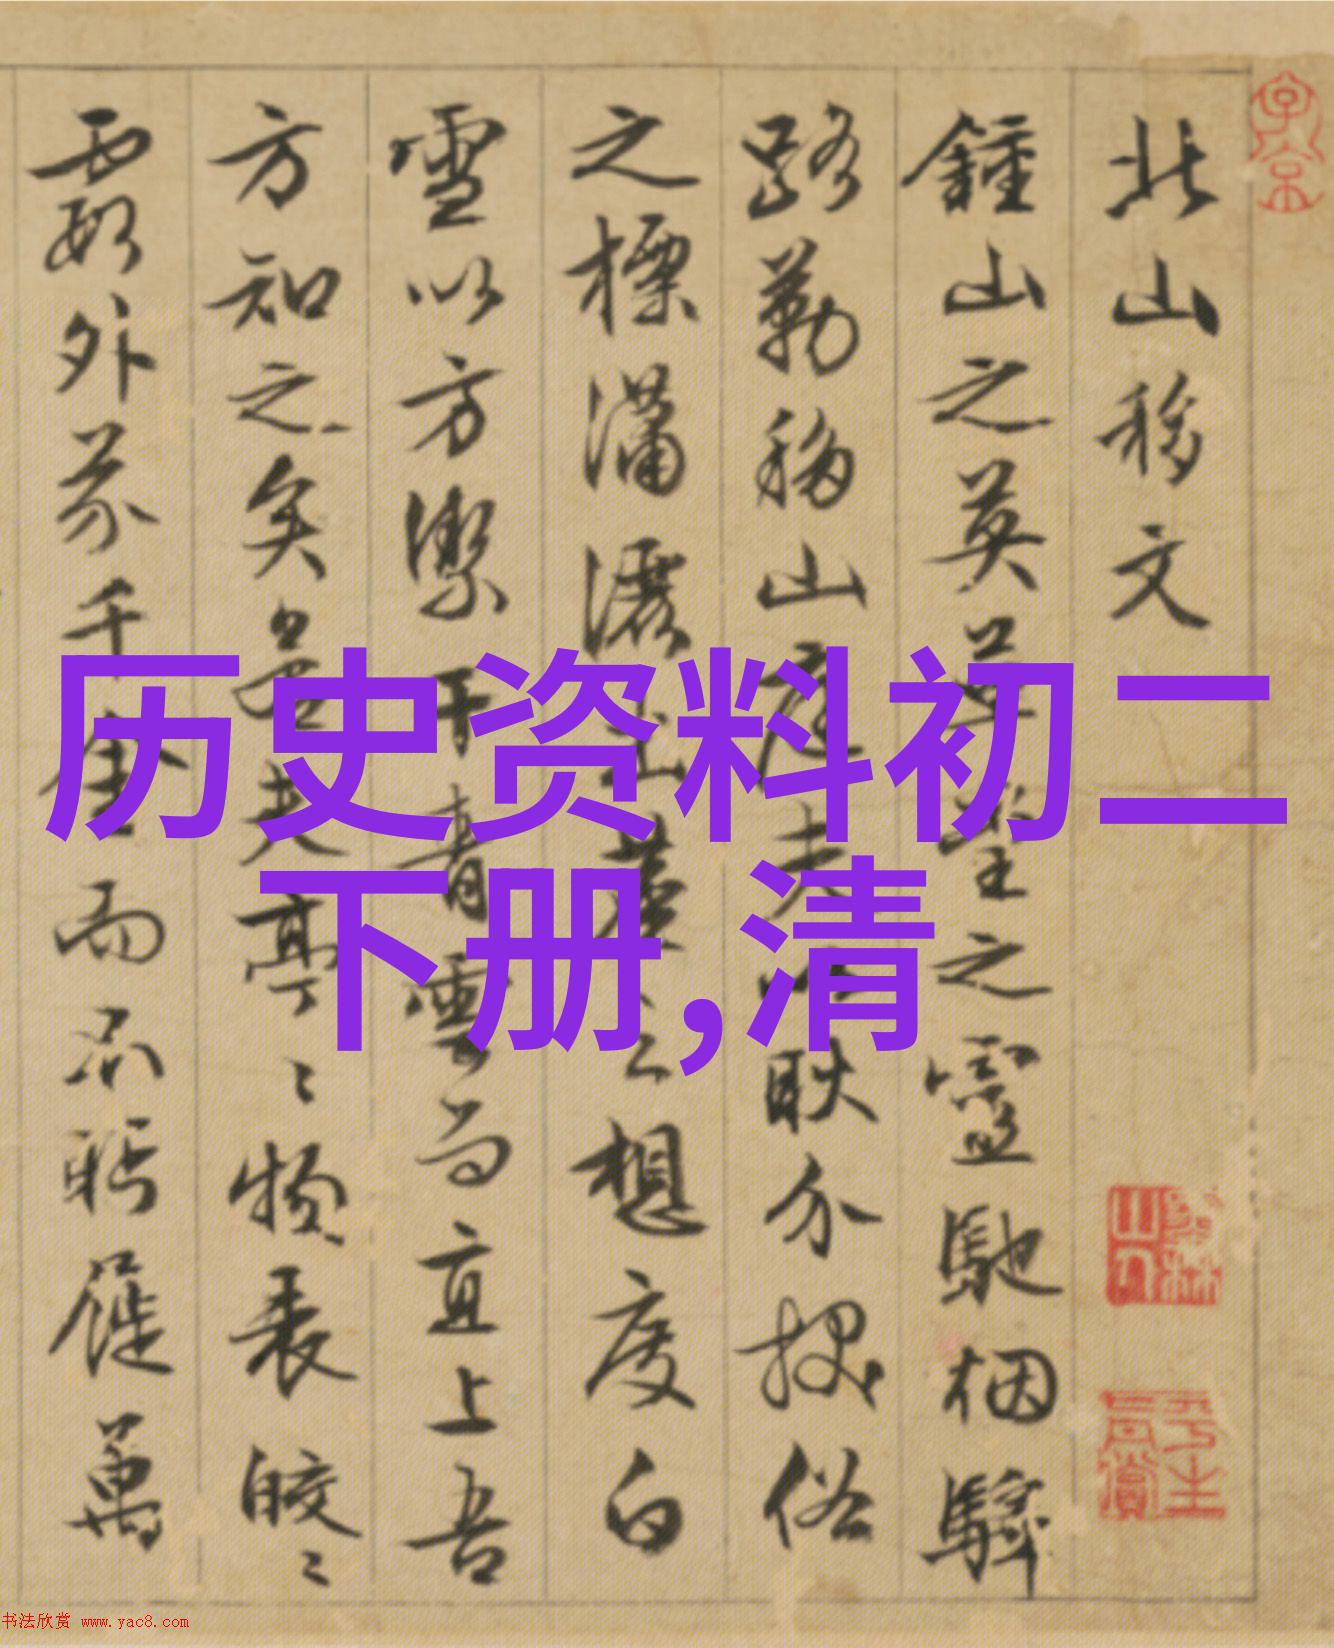 北山移文
鍾山之英草堂之靈馳烟驛
路勒移山庭夫以耿介拔俗
之標瀟灑出塵之想度白
雪以方潔干青雲而直上吾
方知之矣若其亭亭物表皎皎
霞外芥千金而不盻屣萬
历史资料初二
下册,清
书法欣赏 www.yac8.com